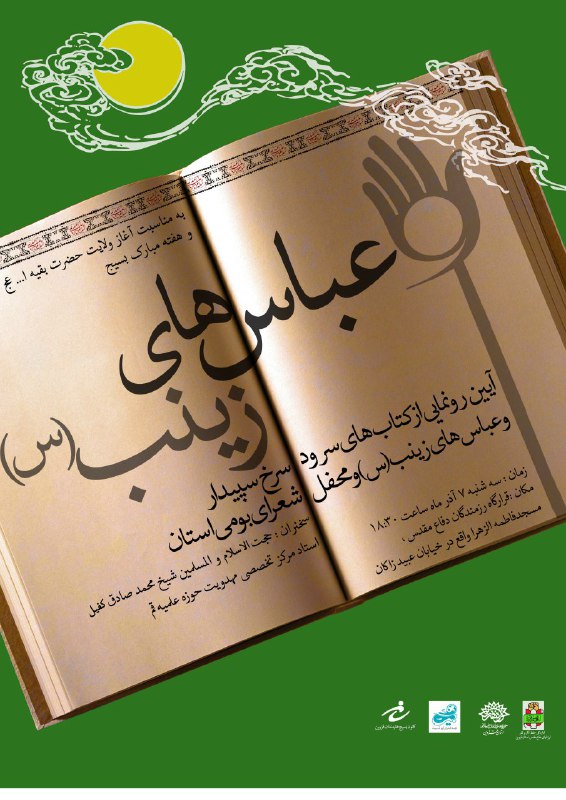 به مناسبت آغاز ولایت حضرت بقیه ا... عج
و هفته مبارک بسیج
عباس‌های
زینب (س)
آیین رونمایی از کتاب‌های سرود سرخ سپیدار
و عباس‌های زینب (س) و محفل شعرای بومی استان
زمان : سه شنبه ۷ آذر ماه ساعت ۱۸:۳۰
مکان : قرارگاه رزمندگان دفاع مقدس ،
مسجد فاطمه الزهرا واقع در خیابان عبید زاکان
سخنران : حجت الاسلام و المسلمین شیخ محمد صادق کفیل
استاد مرکز تخصصی مهدویت حوزه علمیه قم